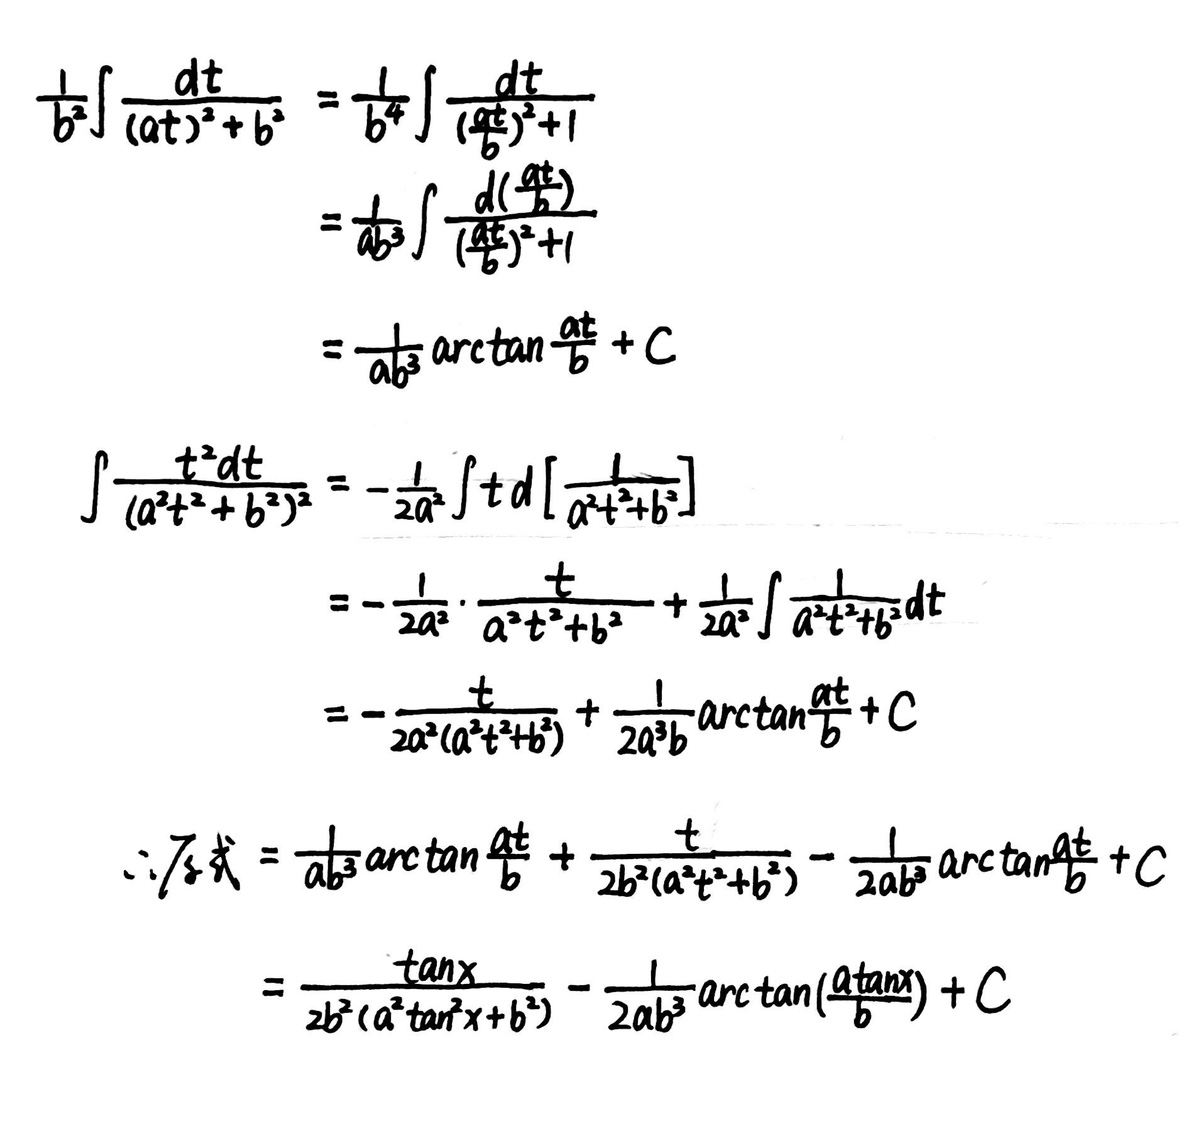 \frac{1}{b^2}\int\frac{dt}{(at)^2+b^2} = \frac{1}{b^4}\int\frac{dt}{(\frac{at}{b})^2+1}
= \frac{1}{ab^3}\int\frac{d(\frac{at}{b})}{(\frac{at}{b})^2+1}
= \frac{1}{ab^3}arctan\frac{at}{b}+C
\int\frac{t^2dt}{(a^2t^2+b^2)^2} = -\frac{1}{2a^2}\int td[\frac{1}{a^2t^2+b^2}]
= -\frac{1}{2a^2}\cdot\frac{t}{a^2t^2+b^2}+\frac{1}{2a^2}\int\frac{1}{a^2t^2+b^2}dt
= -\frac{t}{2a^2(a^2t^2+b^2)}+\frac{1}{2a^3b}arctan\frac{at}{b}+C
∴原式 = \frac{1}{ab^3}arctan\frac{at}{b}+\frac{t}{2b^2(a^2t^2+b^2)}-\frac{1}{2ab^3}arctan\frac{at}{b}+C
= \frac{tanx}{2b^2(a^2tan^2x+b^2)}-\frac{1}{2ab^3}arctan(\frac{atanx}{b})+C